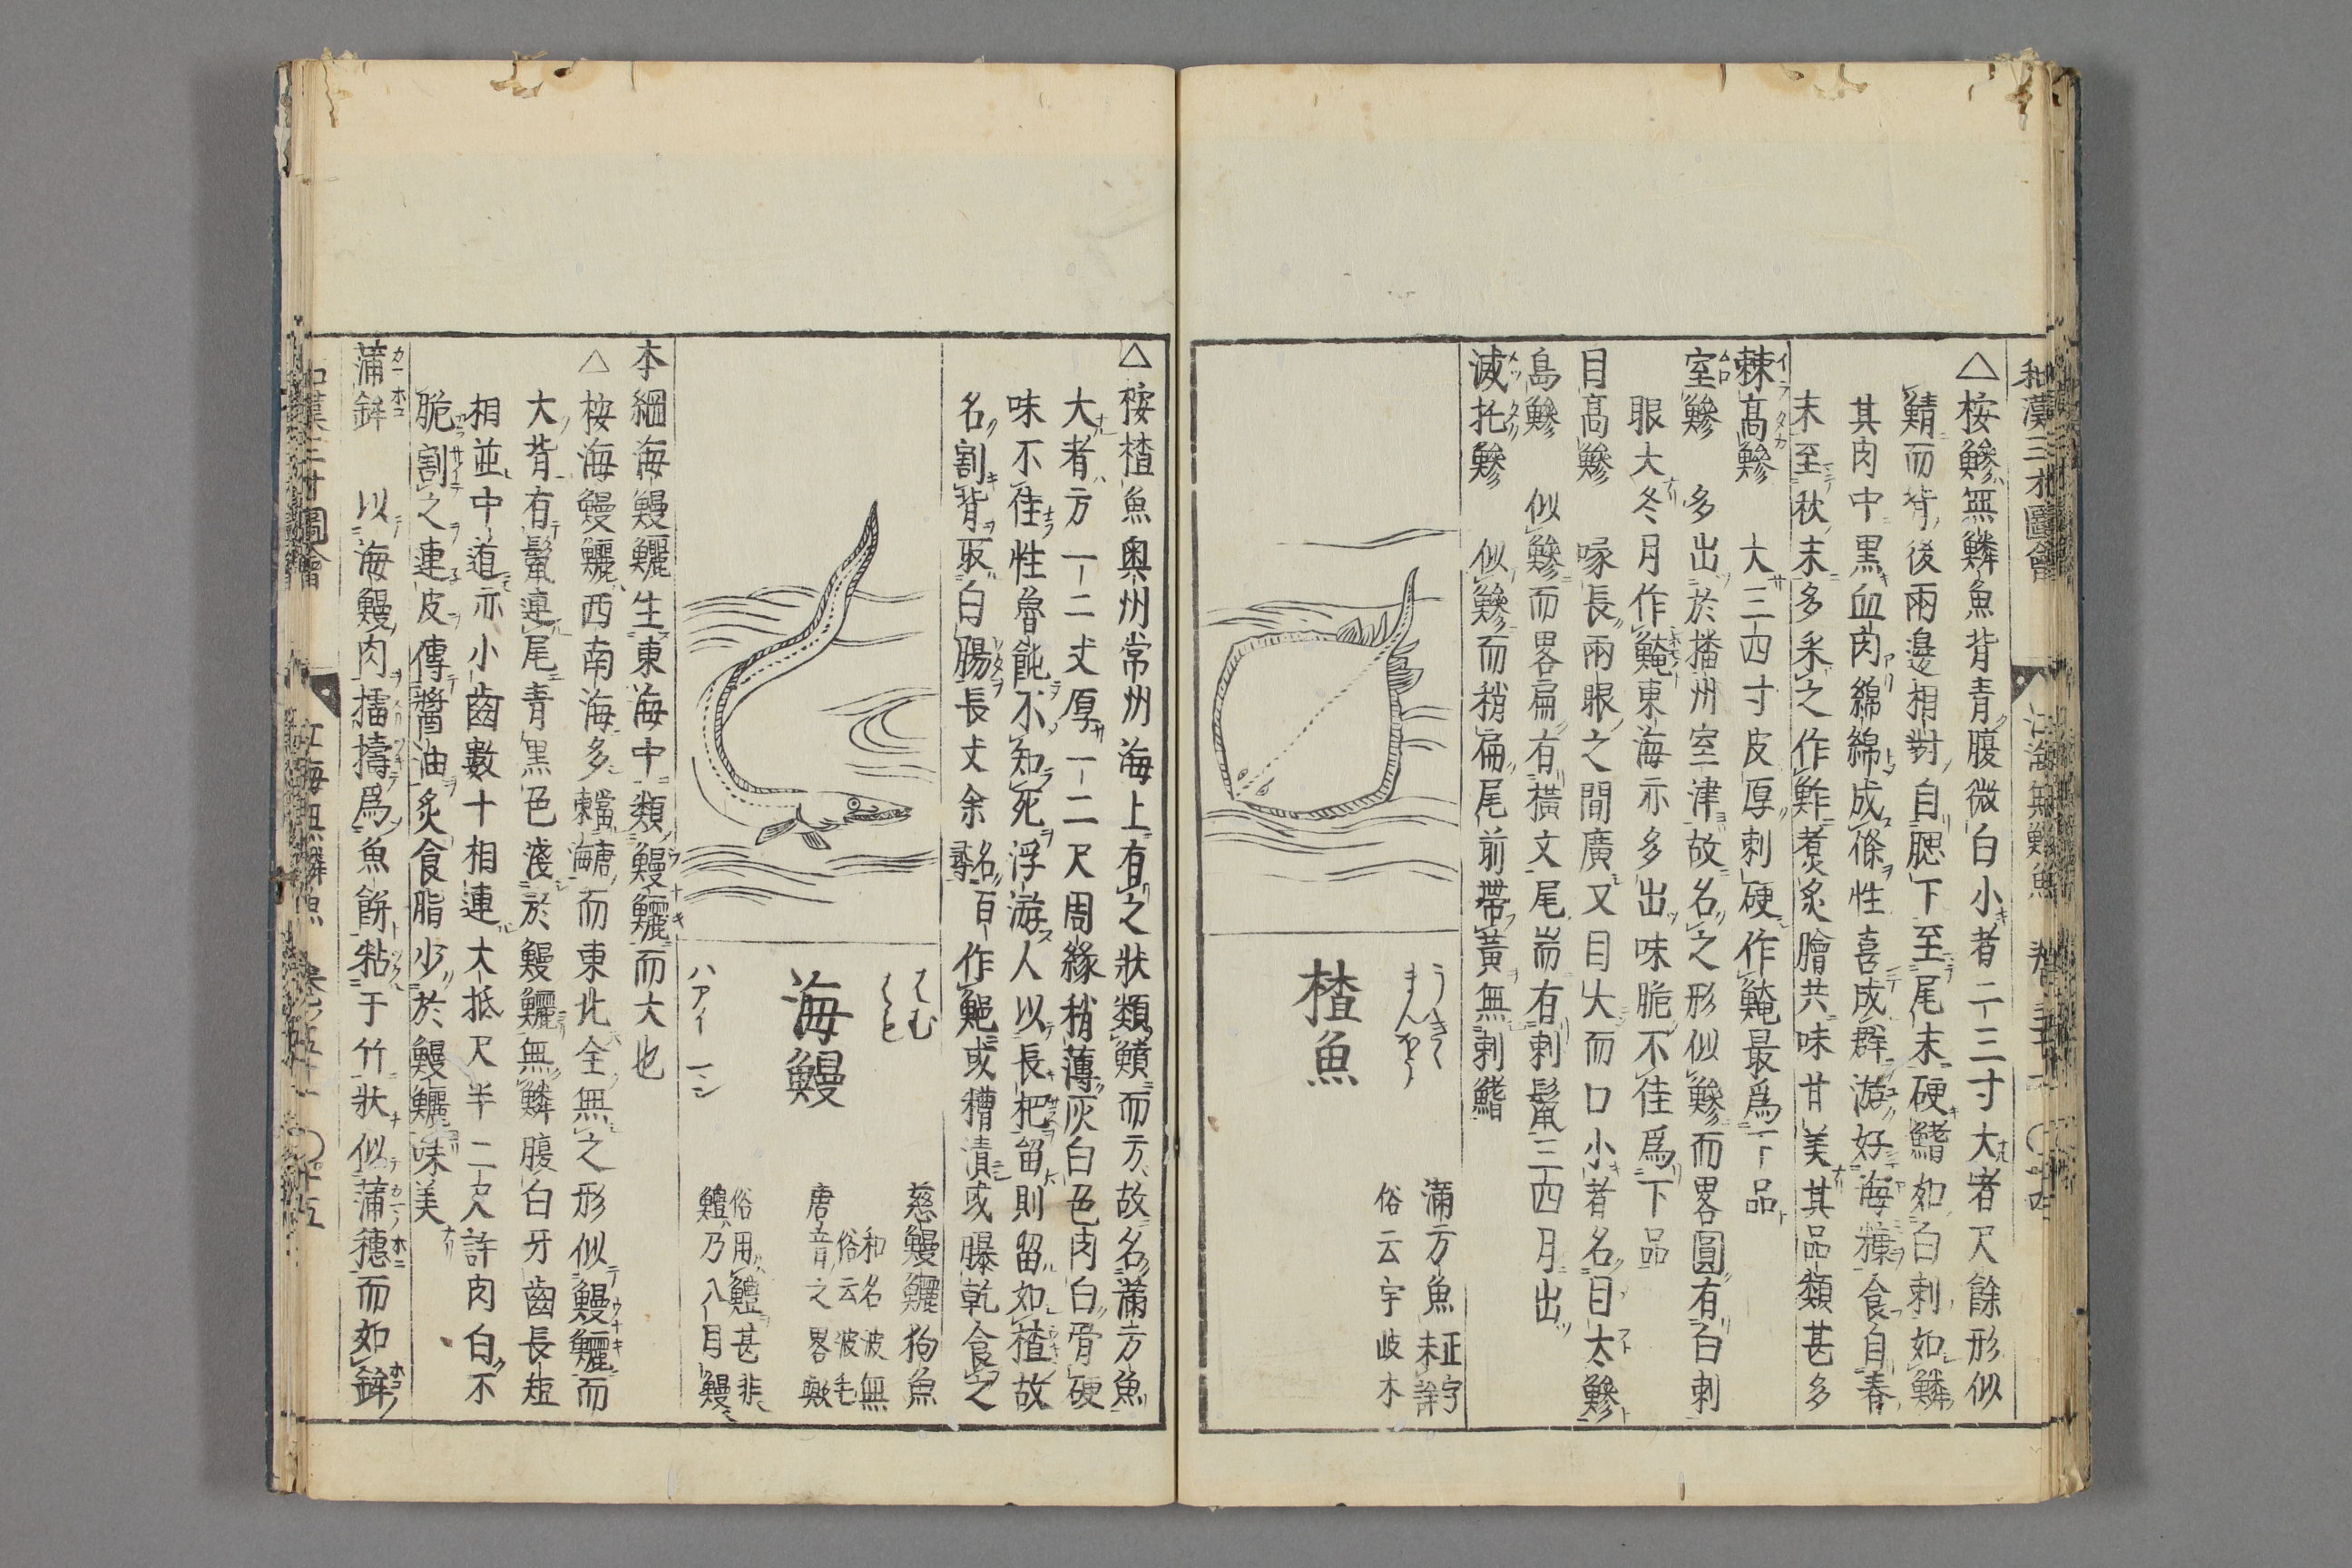 和漢三才圖會 江海無鱗魚
△桉鰺無鱗魚背青腹微白小者二三寸大者尺餘形似
鯖而背後兩邊相對自腮下至尾末硬鰭如白刺如鱗
其肉中黒血肉綿綿成條性喜成群游好海糠食自春
末至秋末多采之作鮓煮炙膾共味甘美其品類甚多
棘高鰺 大三四寸皮厚刺硬作鯥最爲下品
室鰺 多出於播州室津故名之形似鰺而畧圓有白刺
眼大冬月作䱋東海亦多出味脆不佳爲下品
目高鰺 喙長兩眼之間廣又目大而口小者名目太鰺
島鰺 似鰺而畧扁有橫文尾耑有刺鬣三四月出
滅托鰺 似鰺而稍扁尾前帶黃無刺鰭
うきき
まんぼう
楂魚
滿方魚 正字未詳
俗云宇岐木
△桉楂魚奥州常州海上有之狀類鱝而方故名滿方魚
大者方一二丈厚一二尺周緣稍薄灰白色肉白骨硬
味不佳性魯鈍不知死浮游人以長杷留則留如楂故
名割背取白腸長丈余名百尋作䱋或糟漬或曝乾食之
はむ
はも
海鰻
ハアイ マン
慈鰻鱺 狗魚
和名波無
俗云波毛
唐音之畧歟
俗用鱧甚非
鱧乃八目鰻
本綱海鰻鱺生東海中類鰻鱺而大也
△桉海鰻鱺西南海多而東北全無之形似鰻鱺而
大背有鬣連尾青黒色淺於鰻鱺無鱗腹白牙齒長短
相並中道亦小齒數十相連大抵尺半二尺許肉白不
脆割之連皮傳醬油炙食脂少於鰻鱺味美
蒲鉾 以海鰻肉擂擣爲魚餅粘于竹狀似蒲穗而如鉾